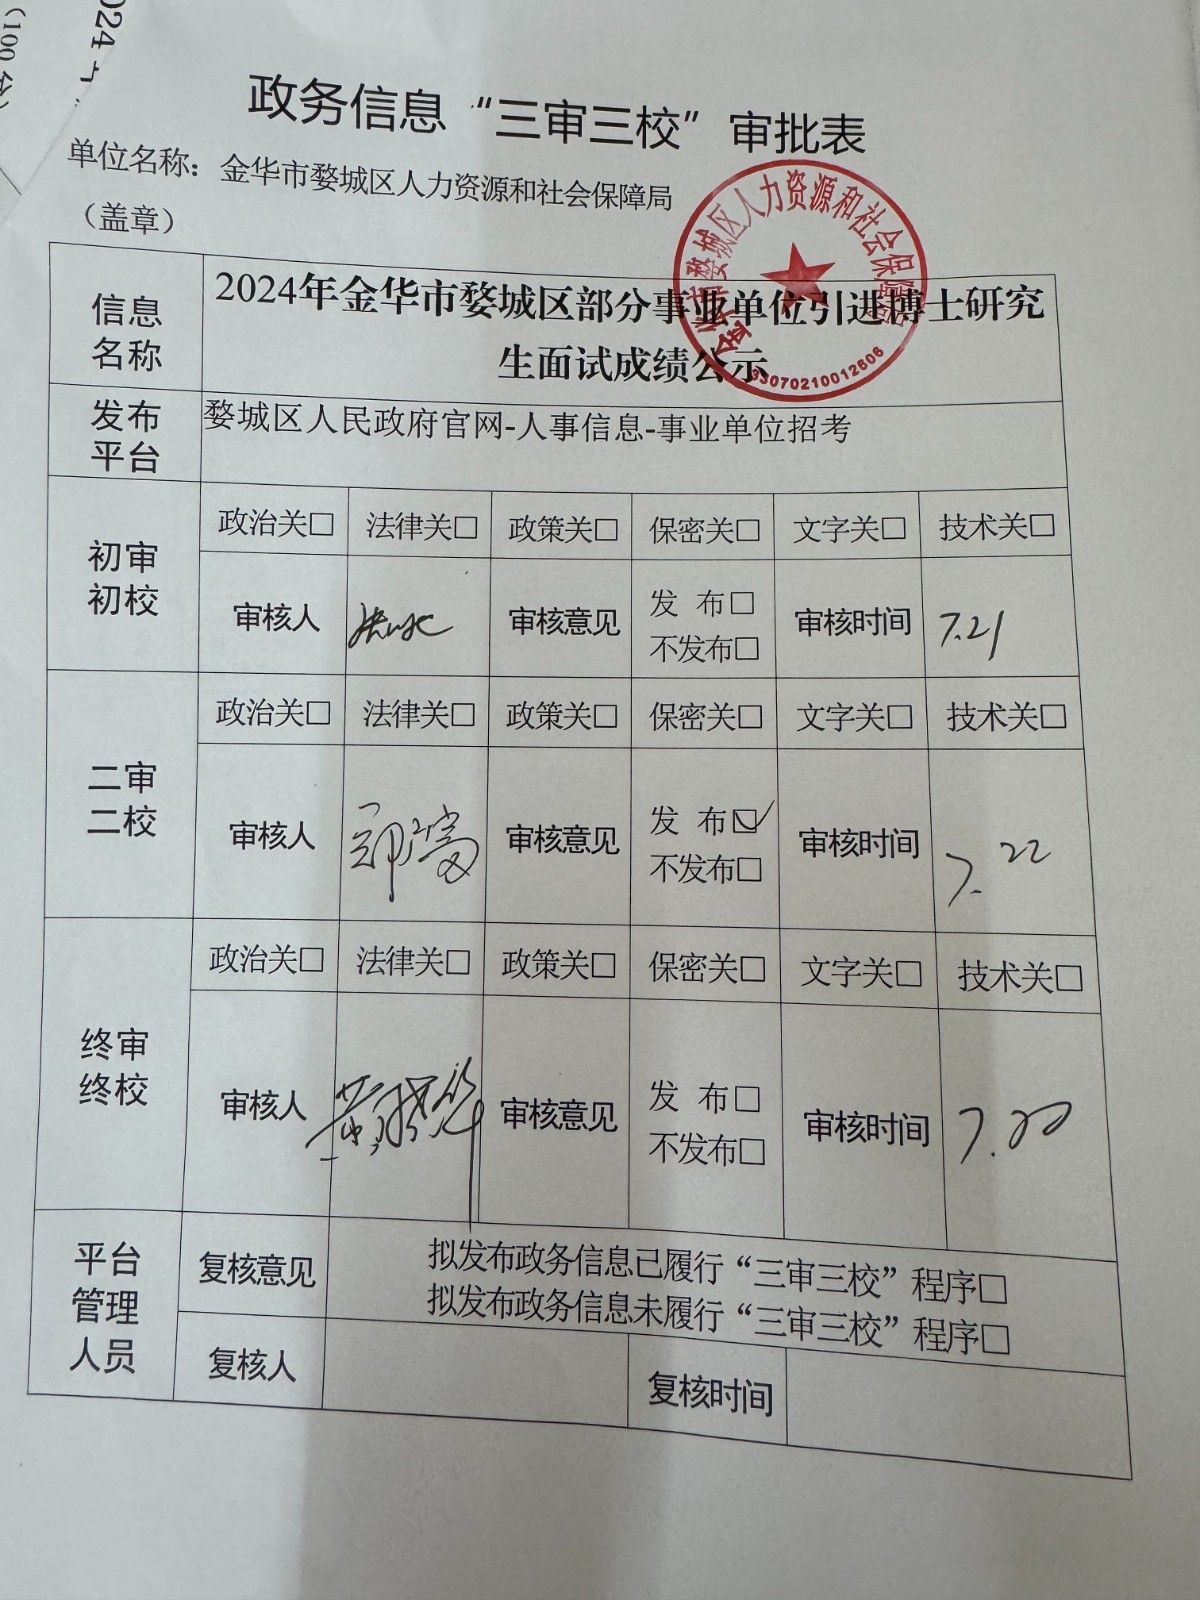 024
（100分）
政务信息“三审三校”审批表
单位名称：金华市婺城区人力资源和社会保障局
（盖章）
金华市婺城区人力资源和社会保障局
33070210012606
信息名称
2024年金华市婺城区部分事业单位引进博士研究
生面试成绩公示
发布平台
婺城区人民政府官网-人事信息-事业单位招考
初审初校
政治关□ 法律关□ 政策关□ 保密关□ 文字关□ 技术关□
审核人 审核意见 发 布□ 审核时间 7.21
不发布□
二审二校
政治关□ 法律关□ 政策关□ 保密关□ 文字关□ 技术关□
审核人 审核意见 发 布☑ 审核时间 7.22
不发布□
终审终校
政治关□ 法律关□ 政策关□ 保密关□ 文字关□ 技术关□
审核人 审核意见 发 布□ 审核时间 7.22
不发布□
平台管理人员
复核意见
拟发布政务信息已履行“三审三校”程序□
拟发布政务信息未履行“三审三校”程序□
复核人 复核时间